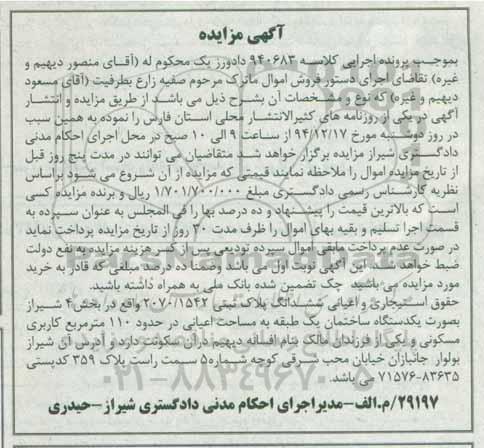 آگهی مزایده
بموجب پرونده اجرایی کلاسه ۹۴۰۶۸۳ دادورز یک محکوم له (آقای منصور دیهیم و
غیره) تقاضای اجرای دستور فروش اموال ماترک مرحوم صفیه زارع بطرفیت (آقای مسعود
دیهیم و غیره) که نوع و مشخصات آن بشرح ذیل می باشد از طریق مزایده و انتشار
آگهی در یکی از روزنامه های کثیرالانتشار محلی استان فارس را نموده به همین سبب
در روز دوشنبه مورخ ۹۴/۱۲/۱۷ از ساعت ۹ الی ۱۰ صبح در محل اجرای احکام مدنی
دادگستری شیراز مزایده برگزار خواهد شد متقاضیان می توانند در مدت پنج روز قبل
از تاریخ مزایده اموال را ملاحظه نمایند قیمتی که مزایده از آن شروع می شود براساس
نظریه کارشناس رسمی دادگستری مبلغ ۱/۷۰۱/۷۰۰/۰۰۰ ریال و برنده مزایده کسی
است که بالاترین قیمت را پیشنهاد و ده درصد بها را فی المجلس به عنوان سپرده به
قسمت اجرا تسلیم و بقیه بهای اموال را ظرف مدت ۳۰ روز از تاریخ مزایده پرداخت نماید
در صورت عدم پرداخت مابقی اموال سپرده تودیعی پس از کسر هزینه مزایده به نفع دولت
ضبط خواهد شد این آگهی نوبت اول می باشد وضمنا ده درصد مبلغی که قادر به خرید
مورد مزایده می باشید چک تضمین شده بانک ملی به همراه داشته باشید.
حقوق استیجاری و اعیانی ششدانگ پلاک ثبتی ۲۰۷۰/۱۵۴۲ واقع در بخش ۴ شیراز
بصورت یکدستگاه ساختمان یک طبقه به مساحت اعیانی در حدود ۱۱۰ مترمربع کاربری
مسکونی و یکی از فرزندان مالک بنام افسانه دیهیم درآن سکونت دارد و آدرس آن شیراز
بولوار جانبازان خیابان محب شرقی کوچه شماره۵ سمت راست پلاک ۳۵۹ کدپستی
۷۱۵۷۶-۸۳۶۳۵ می باشد.
۲۹۱۹۷/م.الف-مدیراجرای احکام مدنی دادگستری شیراز-حیدری
ParsNamadData
۰۲۱-۸۸۳۴۹۶۷۰-۵